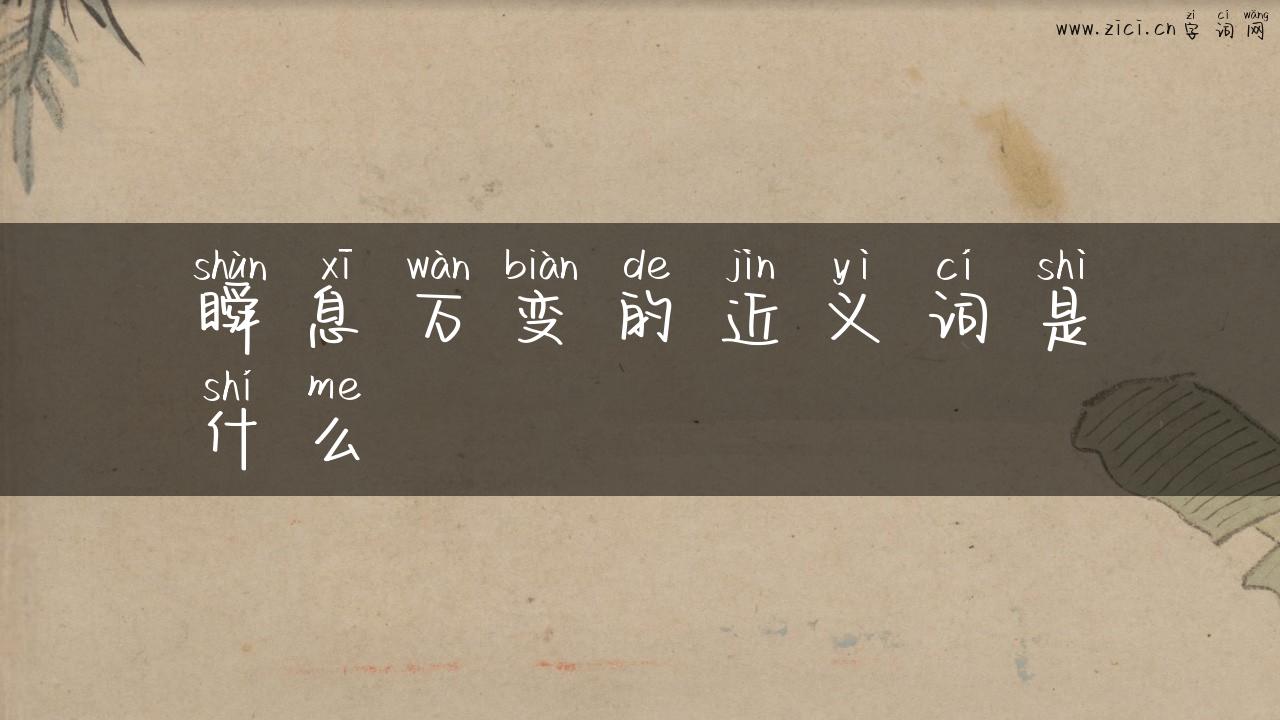 zì cí wǎng
www.zici.cn 字词网
shùn xī wàn biàn de jìn yì cí shì
瞬息万变的近义词是
shí me
什么